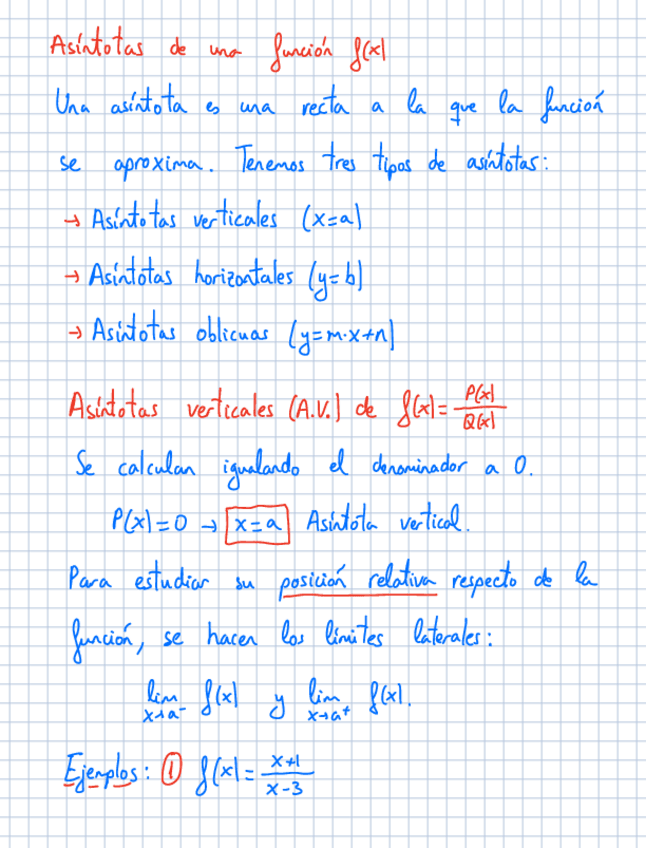 Asíntotas de una función f(x)
Una asíntota es una recta a la que la función
se aproxima. Tenemos tres tipos de asíntotas:
→ Asíntotas verticales (x=a)
→ Asíntotas horizontales (y=b)
→ Asíntotas oblicuas (y=m·x+n)
Asíntotas verticales (A.V.) de f(x)=P(x)/Q(x)
Se calculan igualando el denominador a 0.
P(x)=0 → x=a Asíntota vertical.
Para estudiar su posición relativa respecto de la
función, se hacen los límites laterales:
lim x→a⁻ f(x) y lim x→a⁺ f(x).
Ejemplos: ① f(x)=(x+1)/(x-3)